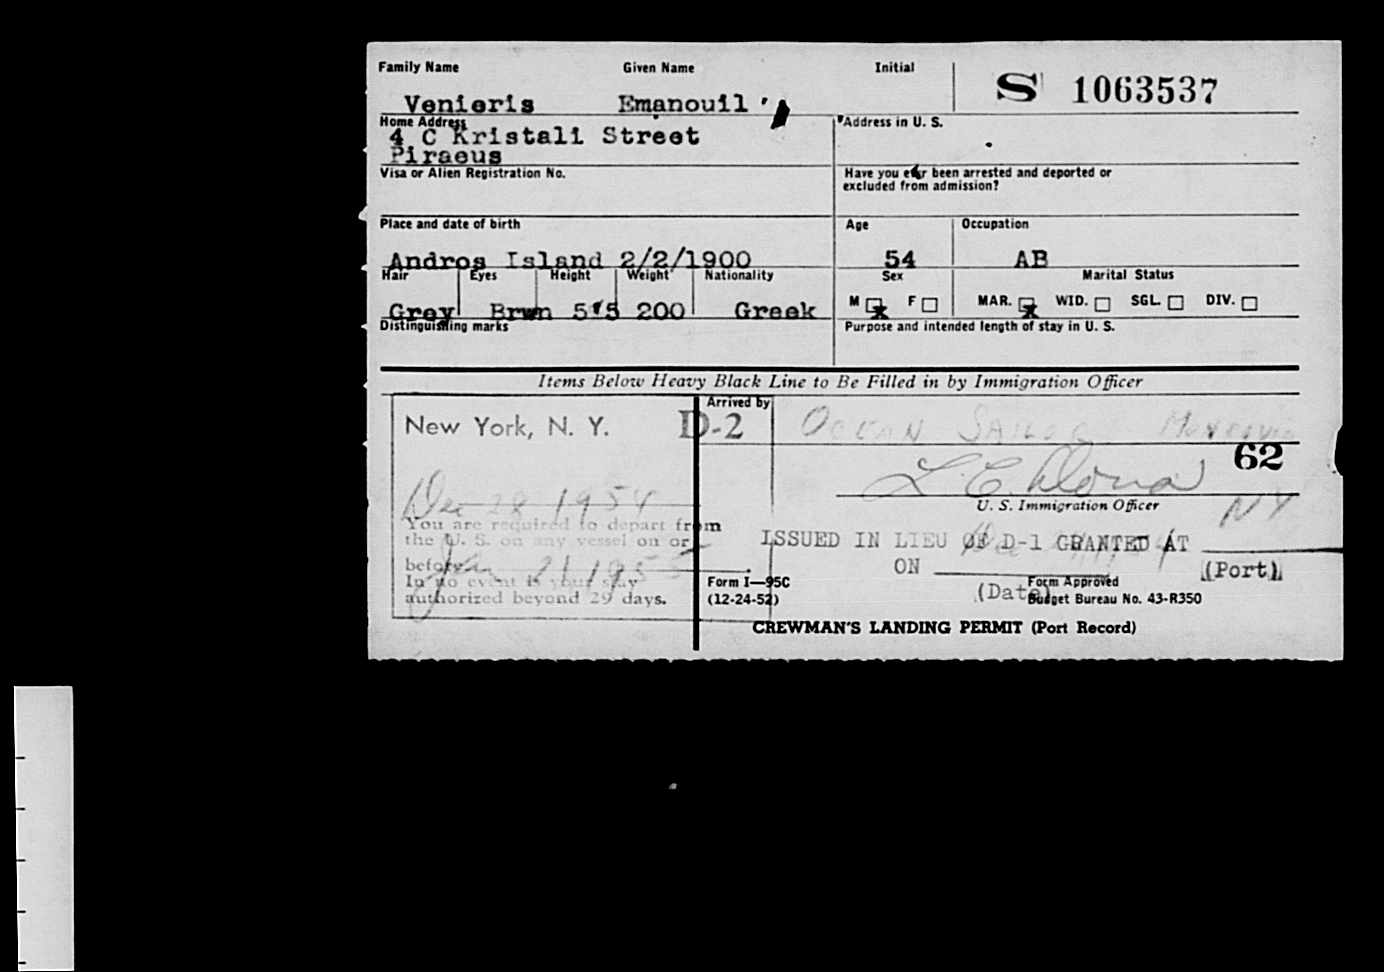 Family Name Given Name Initial
S 1063537
Venieris Emanouil
Home Address
4 C Kristali Street
Piraeus
Address in U. S.
Visa or Alien Registration No.
Have you ever been arrested and deported or
excluded from admission?
Place and date of birth
Andros Island 2/2/1900
Age
54
Occupation
AB
Hair Eyes Height Weight Nationality
Grey Brwn 5'5 200 Greek
Sex
M F
Marital Status
MAR. WID. SGL. DIV.
Distinguishing marks
Purpose and intended length of stay in U. S.
Items Below Heavy Black Line to Be Filled in by Immigration Officer
New York, N. Y.
D-2
Dec 28 1954
You are required to depart from
the U. S. on any vessel on or
before
In no event is your stay
authorized beyond 29 days.
Arrived by
OCEAN SAILOR
62
U. S. Immigration Officer
NY
ISSUED IN LIEU OF D-1 GRANTED AT
(Port)
ON
(Date)
Form I—95C
(12-24-52)
Form Approved
Budget Bureau No. 43-R350
CREWMAN'S LANDING PERMIT (Port Record)